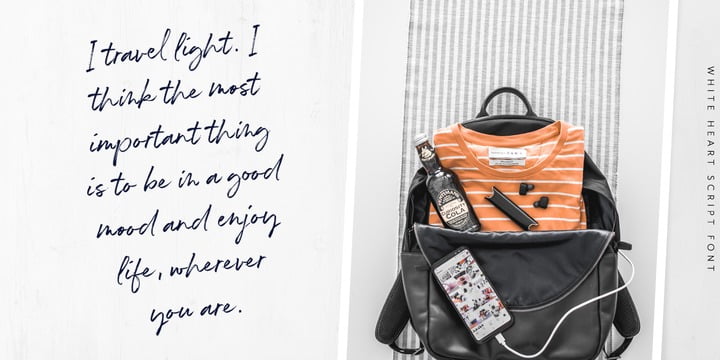 I travel light. I
think the most
important thing
is to be in a good
mood and enjoy
life, wherever
you are.
COLA
WHITE HEART SCRIPT FONT